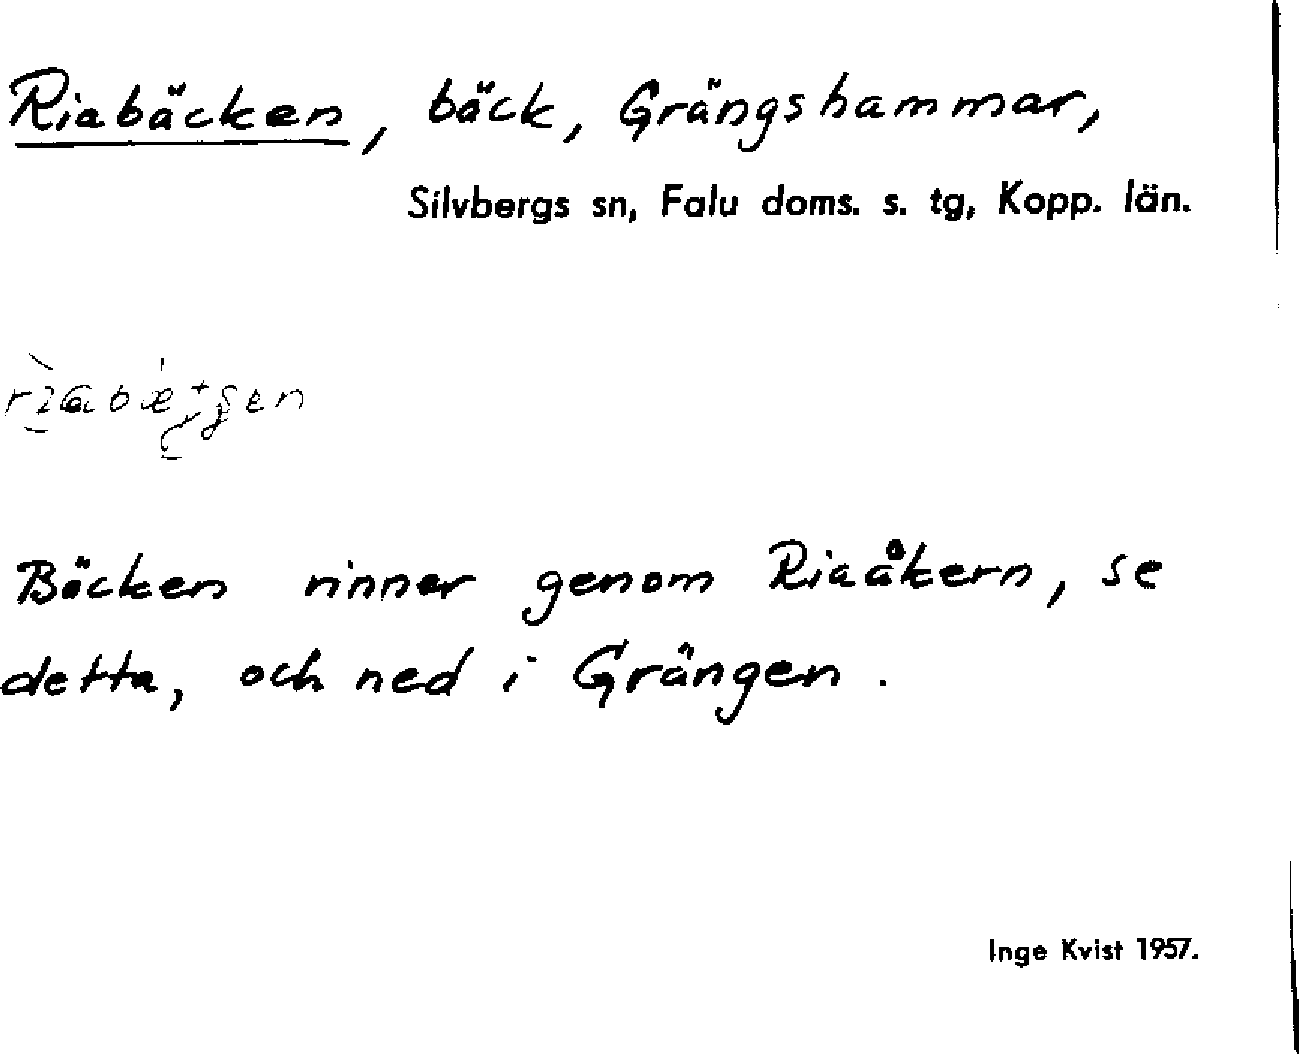 Riabäcken, bäck, Grängshammar,
Silvbergs sn, Falu doms. s. tg, Kopp. län.
Bäcken rinner genom Riaåkern, se
detta, och ned i Grängen.
Inge Kvist 1957.